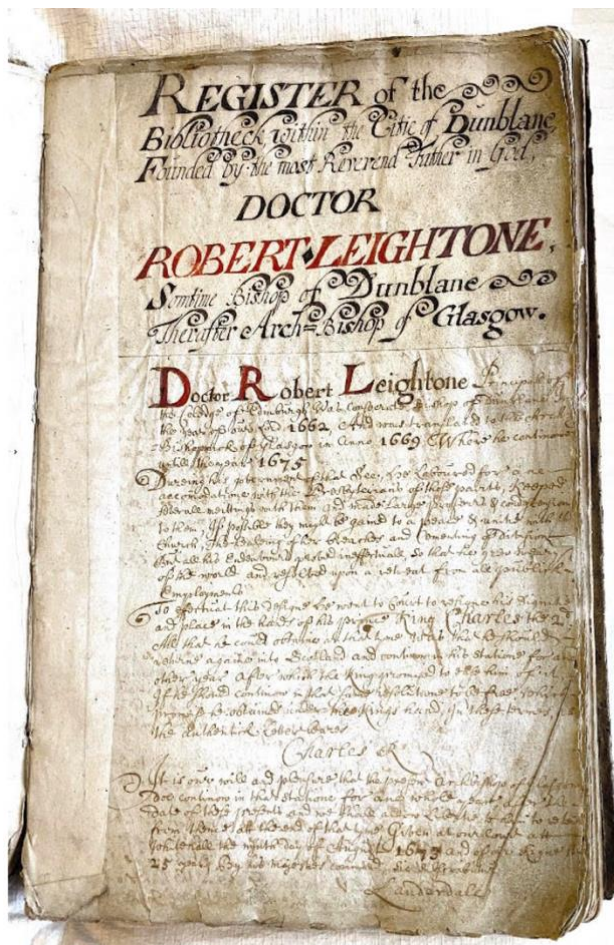 REGISTER of the
Bibliotheck within the Citie of Dunblane
Founded by the most Reverend Father in God,
DOCTOR
ROBERT LEIGHTONE,
Somtime Bishop of Dunblane
Therafter Arch=Bishop of Glasgow.
Doctor Robert Leightone Principall of
the Colledge of Edinburgh was consecrate Bishop of Dunblane in
the year of our Lord 1662 And was translated to the Arch
=Bishoprick of Glasgow in Anno 1669 Where he continowed
untill the year 1675
Dureing his government of that See, he laboured for ane
accomodatione with the Presbyterians of those parts, keeped
severall meetings with them and made large proffers & condescensions
to them, If possible they might be gained to a peace & unitie with the
Church, the healing of her breaches and Cementing of divisions
But all his Endeavours proved ineffectuall, so that he grew weary
of the world and resolved upon a retreat from all publick
Employments
To effectuat this designe he went to Court to resigne his dignitie
and place in the hands of his prince King Charles the 2d
All that he could obtaine at that time was that he should
returne againe into Scotland and continow in his statione for an
other year after which the King promised to ease him of it
If he should continow in that same resolutione to be free which
promise he obtained under the Kings hand In these termes, as
the authentick Coppie beares
Charles R
It is our will and pleasure that the present Archbishop of Glasgow
doe continow in that statione for ane whole year
date of these presents and we shall allow libertie to him to retire
from thence at the end of that time Given at our Court att
Whitehall the nynth day of August 1673 and of our Reigne the
25 year By his Majesties command
Lauderdale